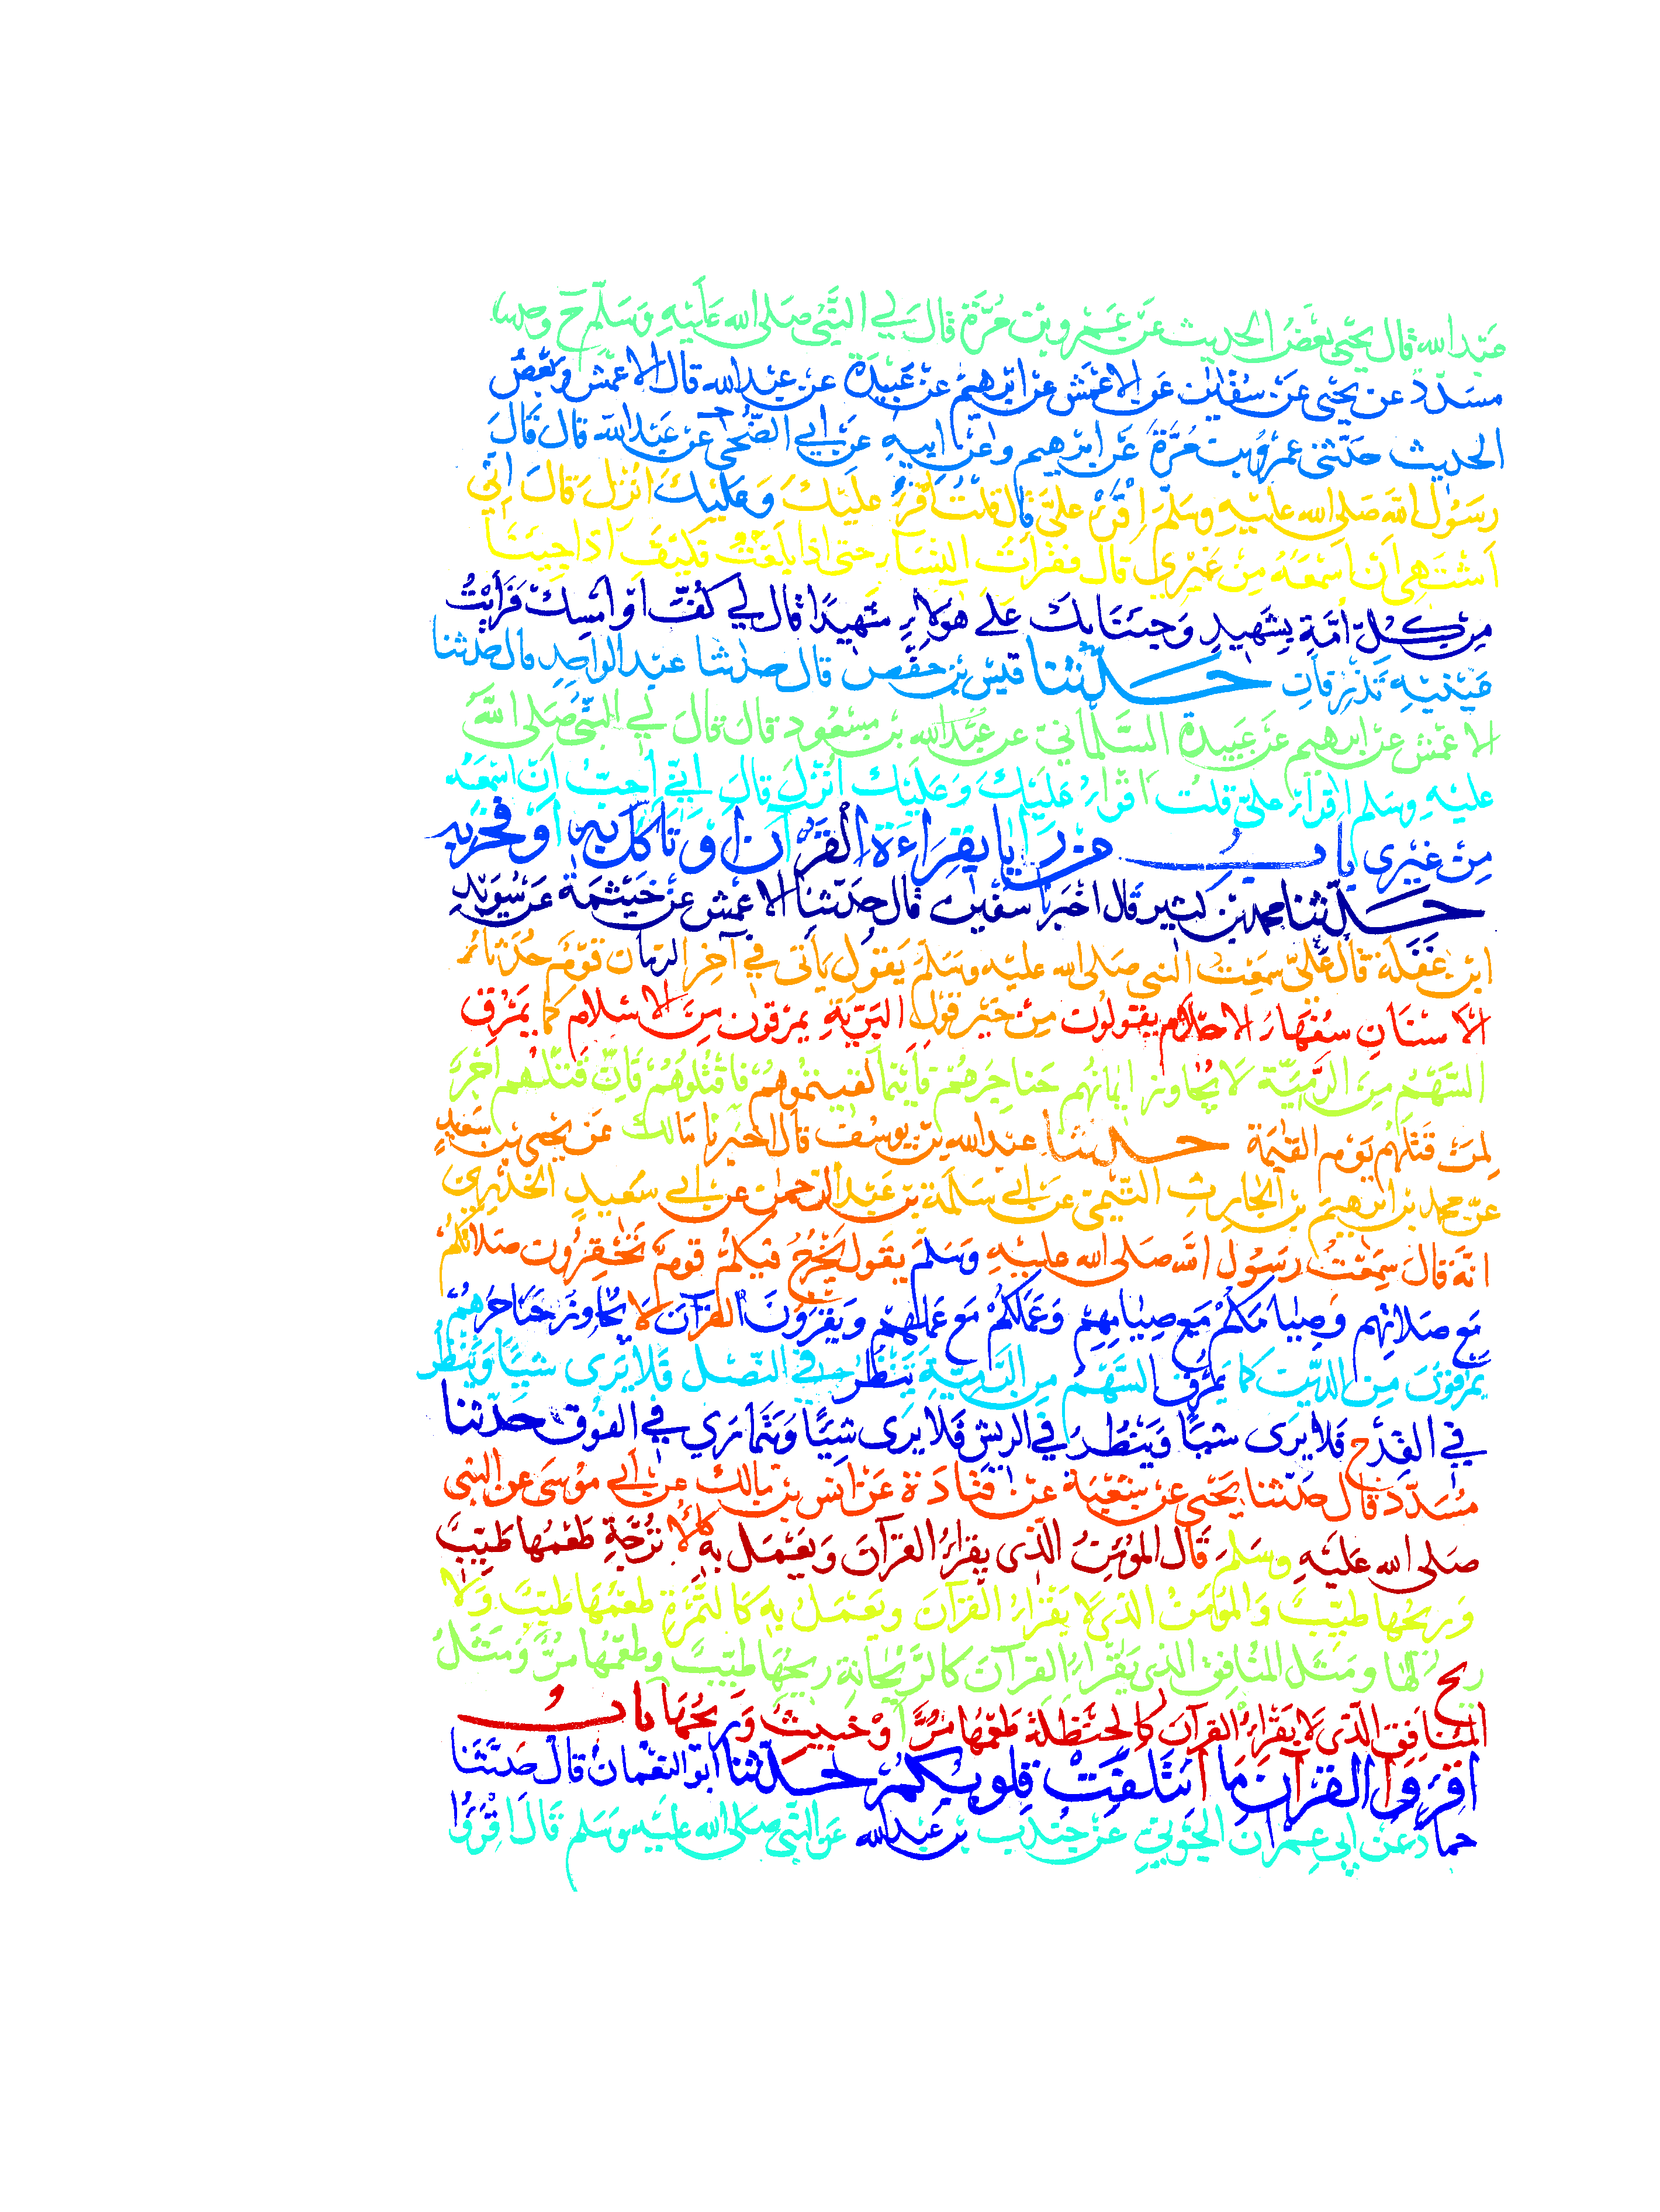 عبد الله قال يحيى بعض الحديث عن عمرو بن مرة قال لي النبي صلى الله عليه وسلم ح وحدثنا
مسدد عن يحيى عن سفيان عن الاعمش عن ابرهيم عن عبيدة عن عبد الله قال الاعمش وبعض
الحديث حدثني عمرو بن مرة عن ابرهيم وعن ابيه عن ابي الضحى عن عبد الله قال قال
رسول الله صلى الله عليه وسلم اقرء علي قال قلت اقرء عليك وعليك انزل قال اني
اشتهي ان اسمعه من غيري قال فقرات النساء حتى اذا بلغت فكيف اذا جينا
من كل امة بشهيد وجئنا بك على هولاء شهيدا قال لي كف او امسك فرايت
عينيه تذرفان حدثنا قيس بن حفص قال حدثنا عبد الواحد قال حدثنا
الاعمش عن ابرهيم عن عبيدة السلماني عن عبد الله بن مسعود قال قال لي النبي صلى الله
عليه وسلم اقراء علي قلت اقراء عليك وعليك انزل قال اني احب ان اسمعه
من غيري باب من رايا بقراءة القرآن او تاكل به او فخر به
حدثنا محمد بن كثير قال اخبرنا سفين قال حدثنا الاعمش عن خيثمة عن سويد
ابن غفلة قال علي سمعت النبي صلى الله عليه وسلم يقول ياتي في آخر الزمان قوم حدثاء
الاسنان سفهاء الاحلام يقولون من خير قول البرية يمرقون من الاسلام كما يمرق
السهم من الرمية لا يجاوز ايمانهم حناجرهم فاينما لقيتموهم فاقتلوهم فان قتلهم اجر
لمن قتلهم يوم القيمة حدثنا عبد الله بن يوسف قال اخبرنا مالك عن يحيى بن سعيد
عن محمد بن ابرهيم بن الحارث التيمي عن ابي سلمة بن عبد الرحمن عن ابي سعيد الخدري
انه قال سمعت رسول الله صلى الله عليه وسلم يقول يخرج فيكم قوم تحقرون صلاتكم
مع صلاتهم وصيامكم مع صيامهم وعملكم مع عملهم ويقرون القرآن لا يجاوز حناجرهم
يمرقون من الدين كما يمرق السهم من الرمية ينظر في النصل فلا يرى شيا وينظر
في القدح فلا يرى شيا وينظر في الريش فلا يرى شيا ويتمارى في الفوق حدثنا
مسدد قال حدثنا يحيى عن شعبة عن قتادة عن انس بن مالك عن ابي موسى عن النبي
صلى الله عليه وسلم قال المؤمن الذي يقراء القرآن ويعمل به كالاترجة طعمها طيب
وريحها طيب والمؤمن الذي لا يقراء القرآن ويعمل به كالتمرة طعمها طيب ولا
ريح لها ومثل المنافق الذي يقراء القرآن كالريحانة ريحها طيب وطعمها مر ومثل
المنافق الذي لا يقراء القرآن كالحنظلة طعمها مر او خبيث وريحها باب
اقروا القرآن ما ائتلفت قلوبكم حدثنا ابو النعمان قال حدثنا
حماد عن ابي عمران الجوني عن جندب بن عبد الله عن النبي صلى الله عليه وسلم قال اقروا